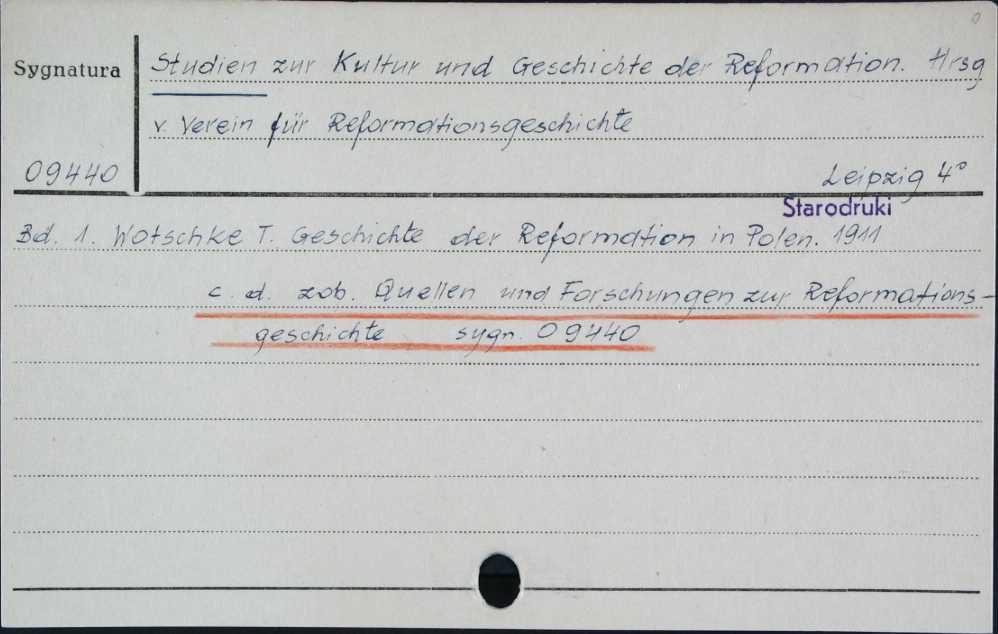 Sygnatura
Studien zur Kultur und Geschichte der Reformation. Hrsg
v. Verein für Reformationsgeschichte
09440
Leipzig 4°
Starodruki
Bd. 1. Wotschke T. Geschichte der Reformation in Polen. 1911
c. d. zob. Quellen und Forschungen zur Reformations-
geschichte sygn. 09440